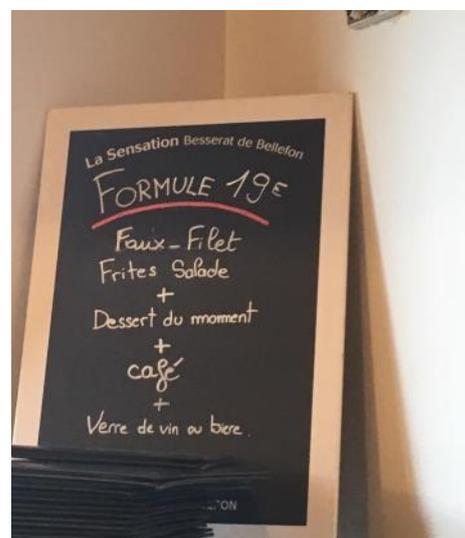 La Sensation Besserat de Bellefon
FORMULE 19€
Faux-Filet
Frites Salade
+
Dessert du moment
+
café
+
Verre de vin ou bière.